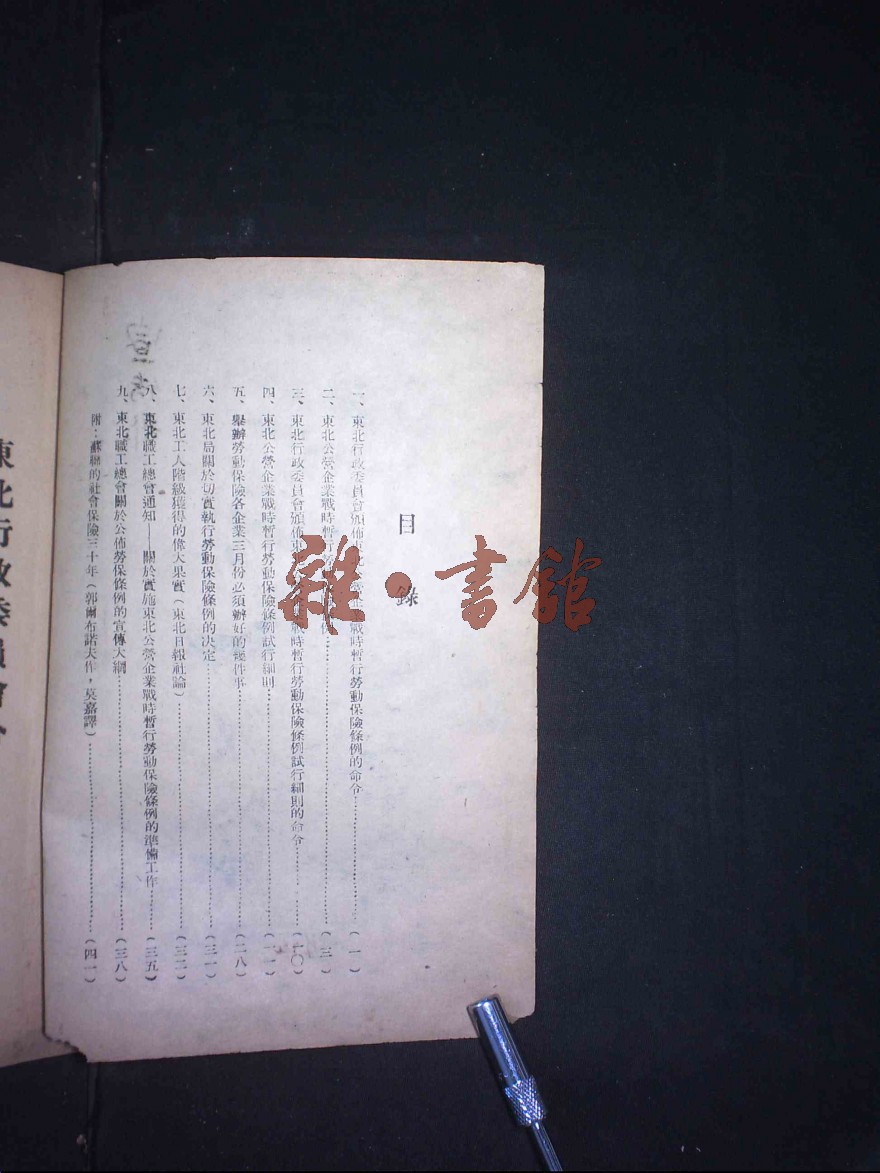 目錄
一、東北行政委員會頒佈東北公營企業戰時暫行勞動保險條例的命令……(一)
二、東北公營企業戰時暫行勞動保險條例……(三)
三、東北行政委員會頒佈東北公營企業戰時暫行勞動保險條例試行細則的命令……(一〇)
四、東北公營企業戰時暫行勞動保險條例試行細則……(一一)
五、舉辦勞動保險各企業三月份必須辦好的幾件事……(二八)
六、東北局關於切實執行勞動保險條例的決定……(三一)
七、東北工人階級獲得的偉大果實(東北日報社論)……(三二)
八、東北職工總會通知——關於實施東北公營企業戰時暫行勞動保險條例的準備工作……(三五)
九、東北職工總會關於公佈勞保條例的宣傳大綱……(三八)
附:蘇聯的社會保險三十年(郭爾布諾夫作,莫嘉譯)……(四一)
東北行政委員會令
雜·書館